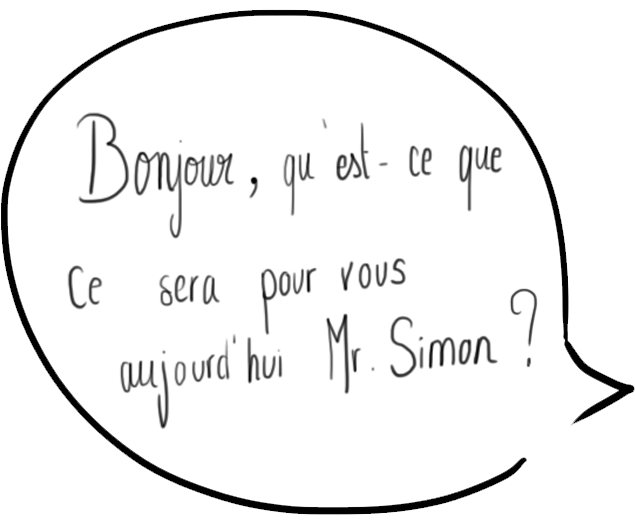 Bonjour, qu'est-ce que
ce sera pour vous
aujourd'hui Mr. Simon ?